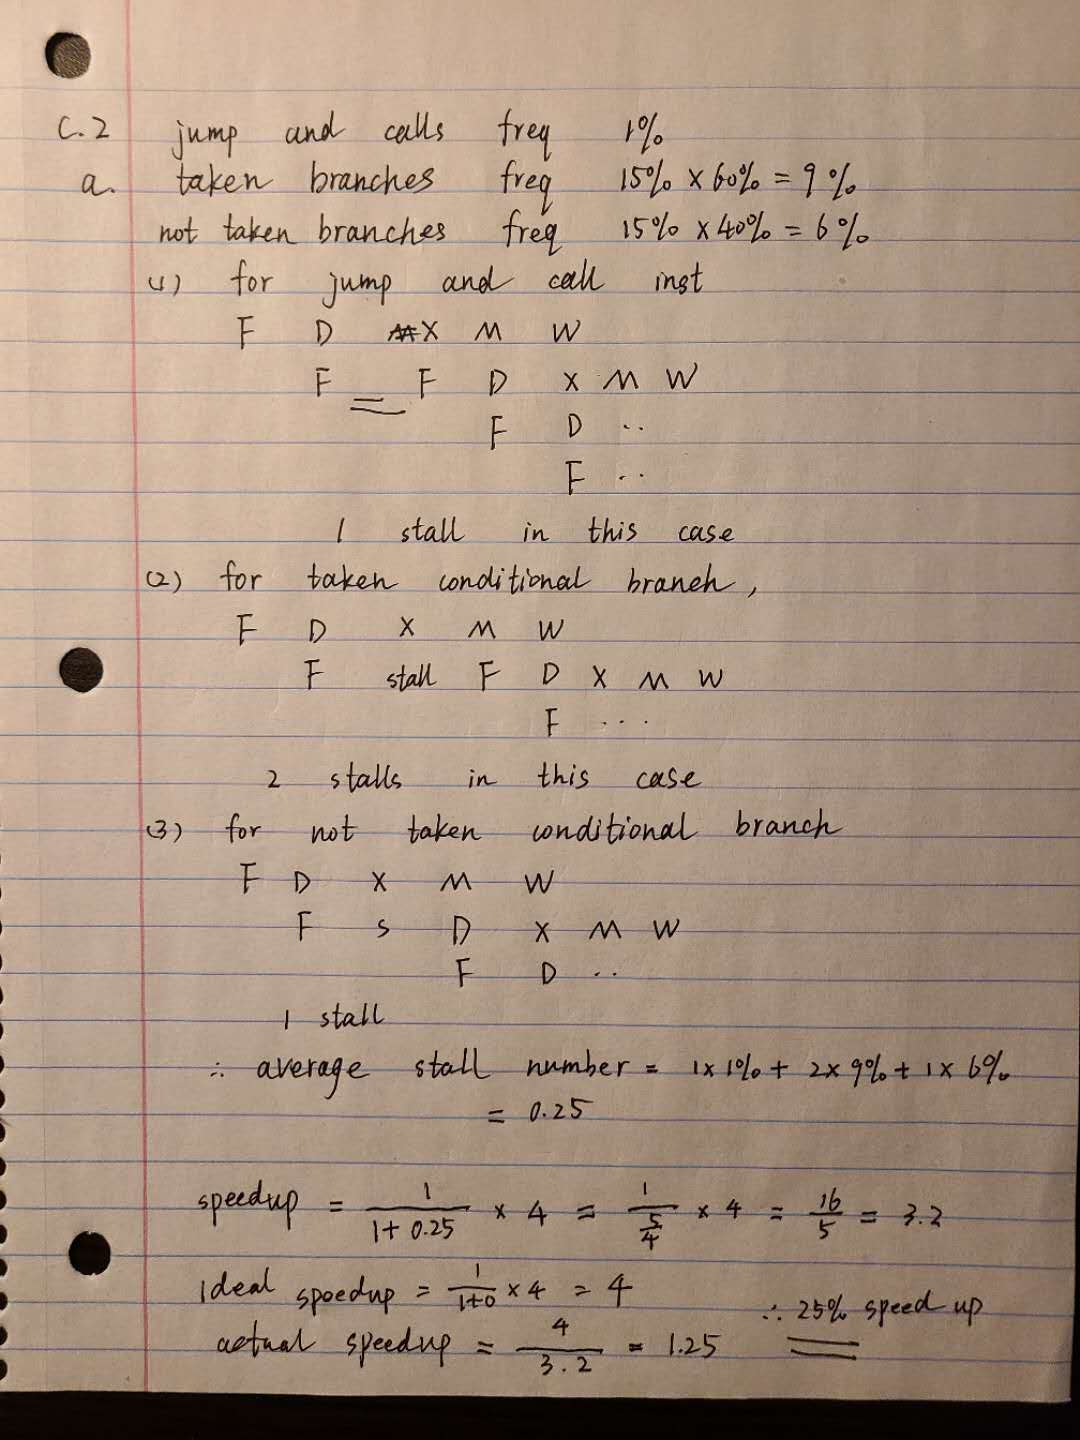 C.2 jump and calls freq 1%
a. taken branches freq 15% × 60% = 9%
not taken branches freq 15% × 40% = 6%
(1) for jump and call inst
F D X M W
F F D X M W
F D ..
F ..
1 stall in this case
(2) for taken conditional branch,
F D X M W
F stall F D X M W
F ...
2 stalls in this case
(3) for not taken conditional branch
F D X M W
F S D X M W
F D ..
1 stall
∴ average stall number = 1×1% + 2×9% + 1×6%
= 0.25
speedup = 1/(1+0.25) × 4 = 1/(5/4) × 4 = 16/5 = 3.2
Ideal speedup = 1/(1+0) × 4 = 4
∴ 25% speed up
actual speedup = 4/3.2 = 1.25